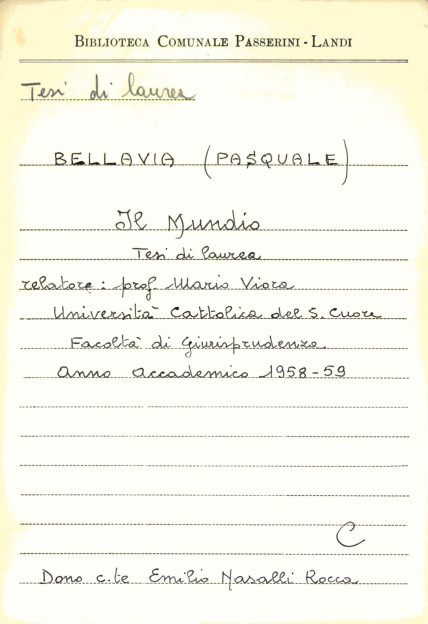 BIBLIOTECA COMUNALE PASSERINI - LANDI
Tesi di laurea
BELLAVIA (PASQUALE)
Il Mundio
Tesi di laurea
relatore: prof. Mario Viora
Università Cattolica del S. Cuore
Facoltà di Giurisprudenza
Anno Accademico 1958-59
C
Dono c.te Emilio Nasalli Rocca